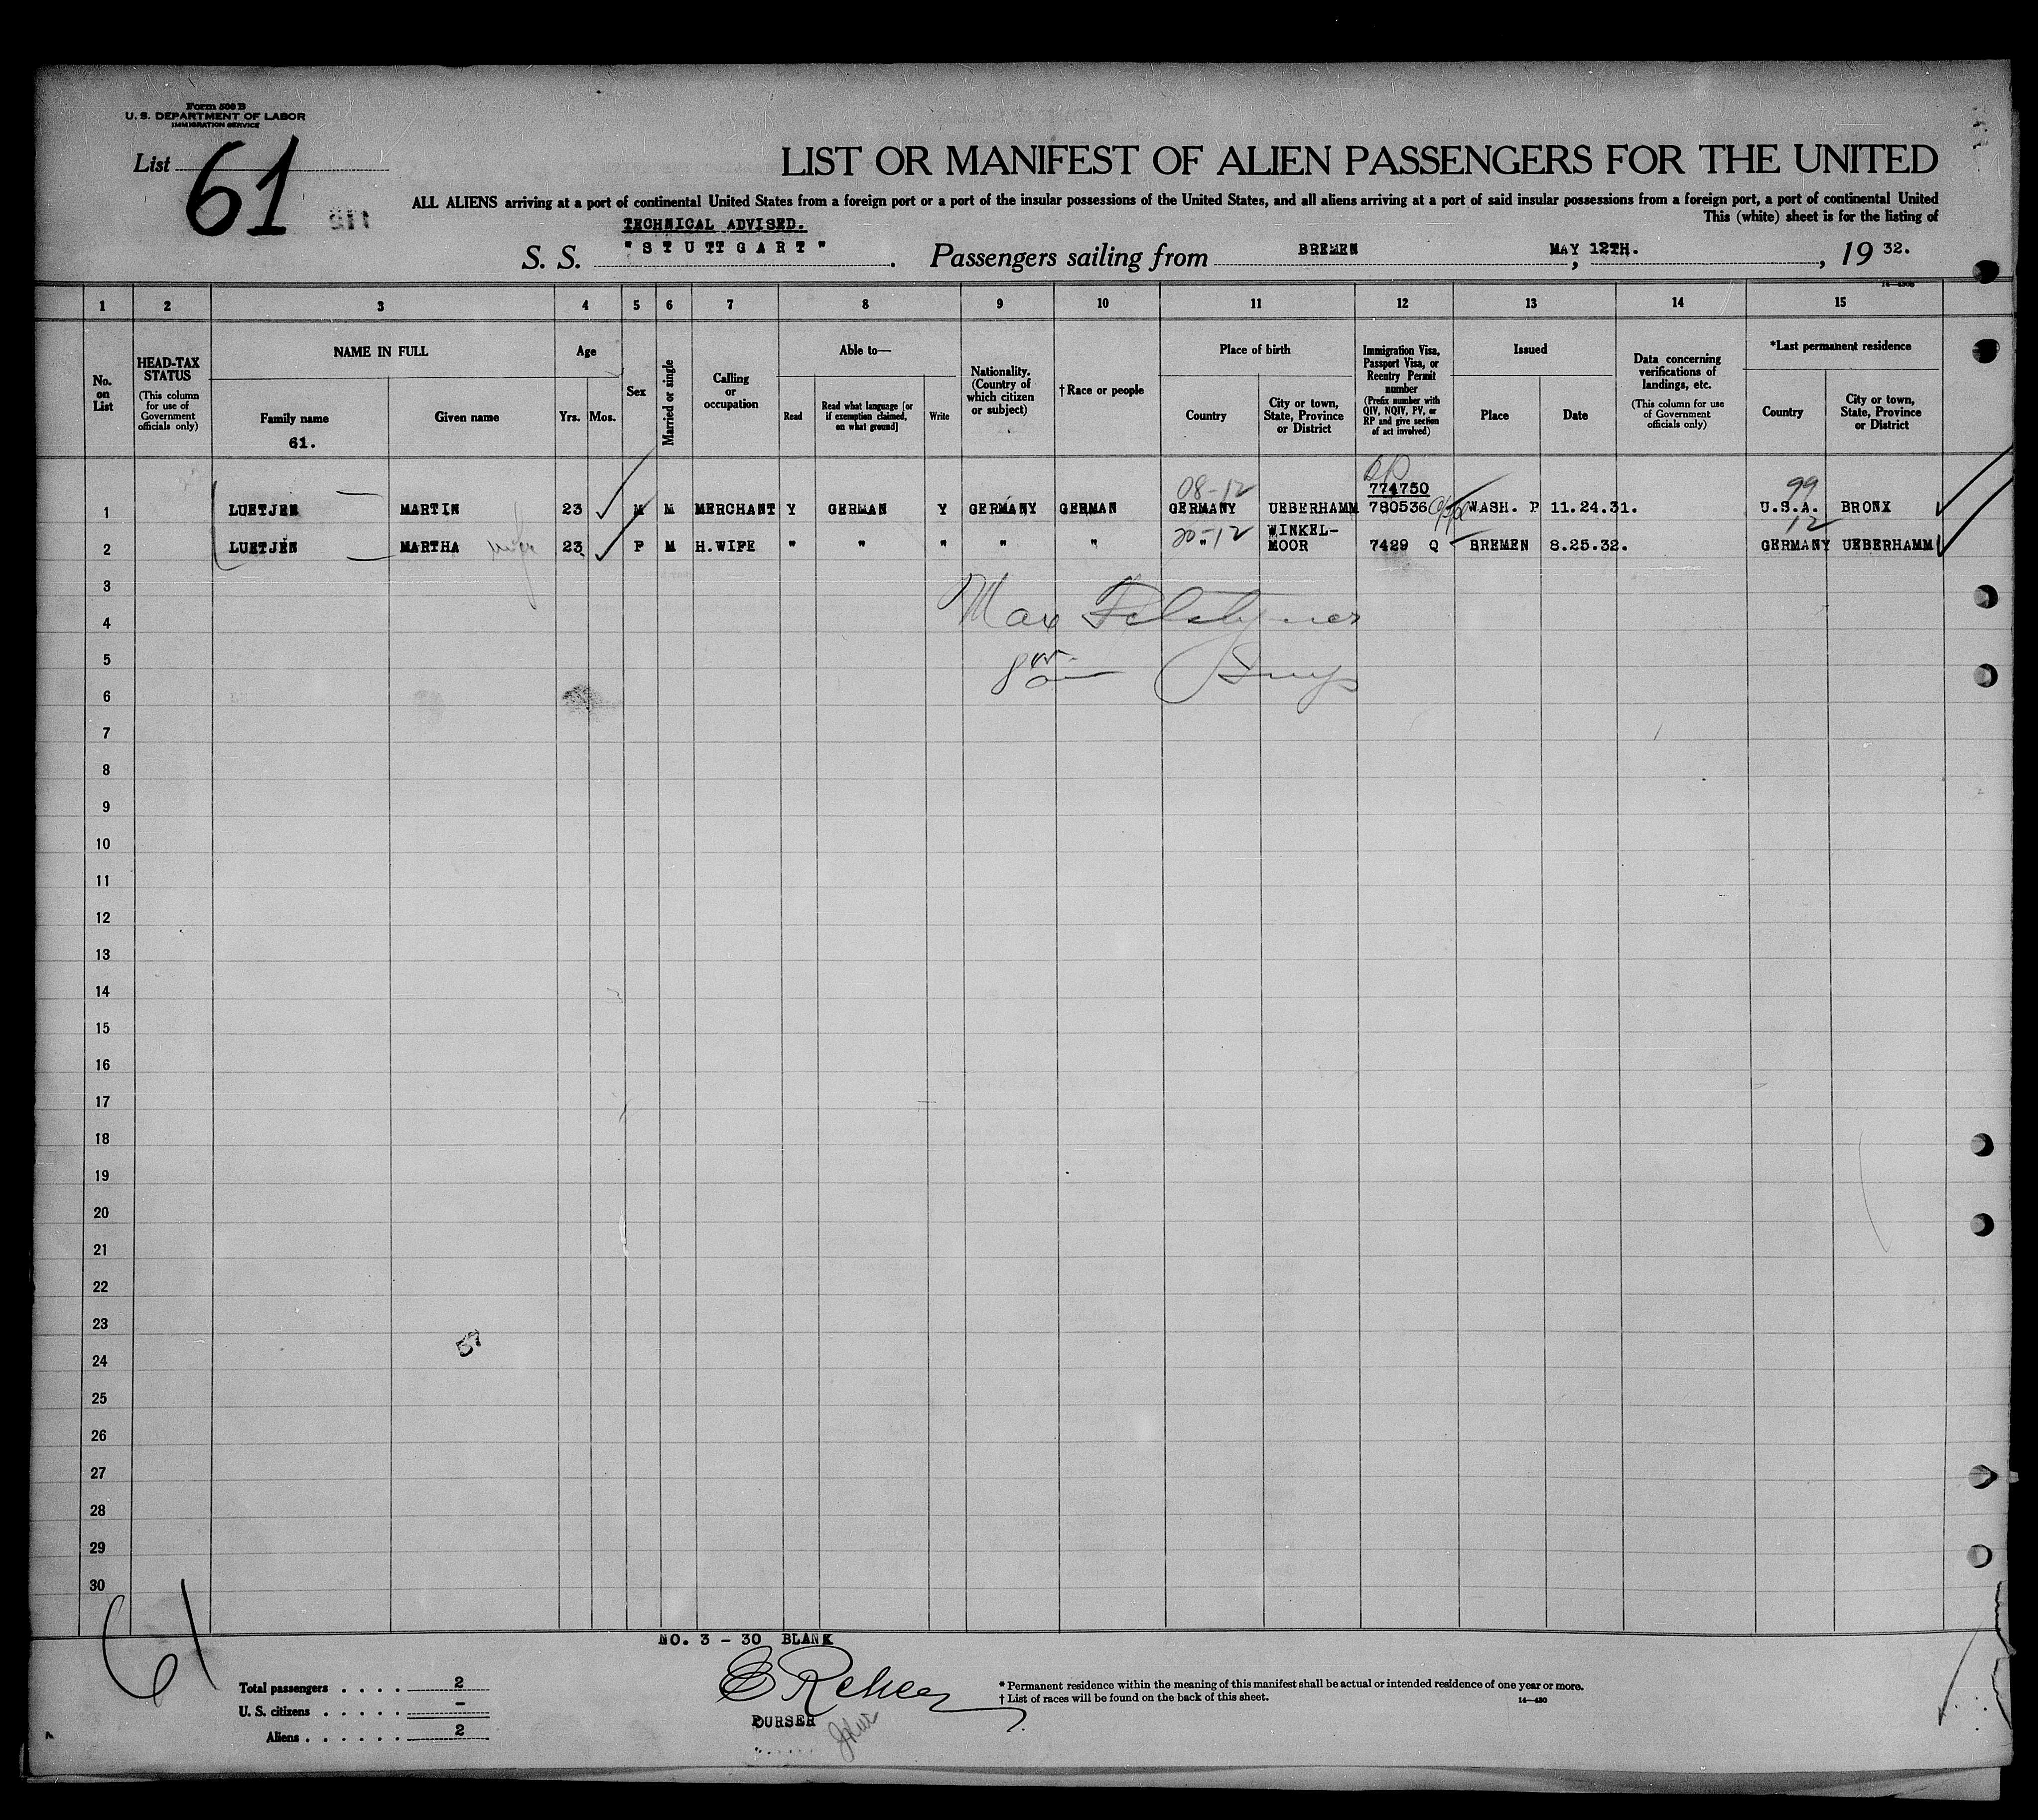 Form 500 B
U. S. DEPARTMENT OF LABOR
IMMIGRATION SERVICE
List 61
LIST OR MANIFEST OF ALIEN PASSENGERS FOR THE UNITED
ALL ALIENS arriving at a port of continental United States from a foreign port or a port of the insular possessions of the United States, and all aliens arriving at a port of said insular possessions from a foreign port, a port of continental United
This (white) sheet is for the listing of
TECHNICAL ADVISED.
S. S. "STUTTGART". Passengers sailing from BREMEN MAY 12TH., 19 32.
1 2 3 4 5 6 7 8 9 10 11 12 13 14 15
No. on List
HEAD-TAX STATUS (This column for use of Government officials only)
NAME IN FULL
Family name
61.
Given name
Age
Yrs. Mos.
Sex
Married or single
Calling or occupation
Able to—
Read
Read what language [or if exemption claimed, on what ground]
Write
Nationality. (Country of which citizen or subject)
† Race or people
Place of birth
Country
City or town, State, Province or District
Immigration Visa, Passport Visa, or Reentry Permit number (Prefix number with QIV, NQIV, PV, or RP and give section of act involved)
Issued
Place
Date
Data concerning verifications of landings, etc. (This column for use of Government officials only)
*Last permanent residence
Country
City or town, State, Province or District
08-12 774750 99
1 LUETJEN MARTIN 23 M M MERCHANT Y GERMAN Y GERMANY GERMAN GERMANY UEBERHAMM 780536 WASH. P 11.24.31. U.S.A. BRONX
20-12 12
2 LUETJEN MARTHA wife 23 F M H.WIFE " " " " " " WINKEL-MOOR 7429 Q BREMEN 8.25.32. GERMANY UEBERHAMM
3
4 Max
5
6
7
8
9
10
11
12
13
14
15
16
17
18
19
20
21
22
23
57
24
25
26
27
28
29
30
61
NO. 3 - 30 BLANK
Total passengers . . . . 2
U. S. citizens . . . . . -
Aliens . . . . . . 2
PURSER
* Permanent residence within the meaning of this manifest shall be actual or intended residence of one year or more.
† List of races will be found on the back of this sheet.
14—430